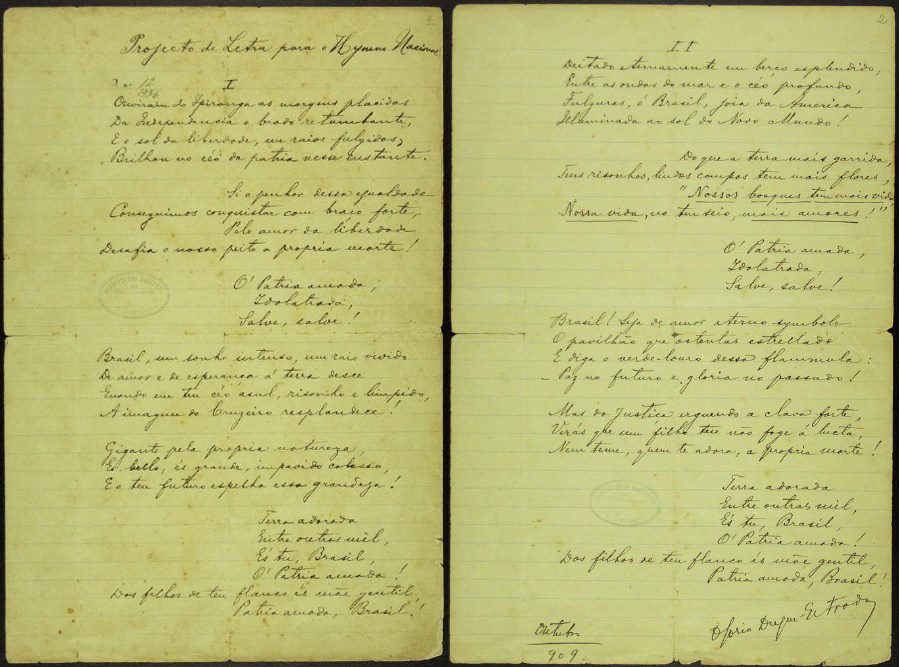 Projecto de Letra para o Hymno Nacional
I
Ouviram do Ypiranga as margens placidas
Da Independencia o brado retumbante,
E o sol da liberdade, em raios fulgidos,
Brilhou no céo da patria nesse instante.
Si o penhor dessa egualdade
Conseguimos conquistar com braço forte,
Pelo amor da liberdade
Desafia o nosso peito a propria morte!
O' Patria amada,
Idolatrada,
Salve, salve!
Brasil, um sonho intenso, um raio vivido
De amor e de esperança á terra desce
Quando em teu céo azul, risonho e limpido,
A imagem do Cruzeiro resplandece!
Gigante pela propria natureza,
És bello, és grande, impavido colosso,
E o teu futuro espelha essa grandeza!
Terra adorada
Entre outras mil,
És tu, Brasil,
O' Patria amada!
Dos filhos de teu flanco és mãe gentil,
Patria amada, Brasil!
2
II
Deitado eternamente em berço esplendido,
Entre as ondas do mar e o céo profundo,
Fulguras, ó Brasil, joia da America
Illuminada ao sol do Novo Mundo!
Do que a terra mais garrida,
Teus risonhos, lindos campos tem mais flores,
"Nossos bosques tem mais vida
Nossa vida, no teu seio, mais amores!"
O' Patria amada,
Idolatrada,
Salve, salve!
Brasil! Seja de amor eterno symbolo
O pavilhão que ostentas estrellado
E diga o verde-louro dessa flammula:
– Paz no futuro e gloria no passado!
Mas da Justiça erguendo a clava forte,
Verás que um filho teu não foge á lucta,
Nem teme, quem te adora, a propria morte!
Terra adorada
Entre outras mil,
És tu, Brasil,
O' Patria amada!
Dos filhos de teu flanco és mãe gentil,
Patria amada, Brasil!
Osorio Duque Estrada
Outubro
909